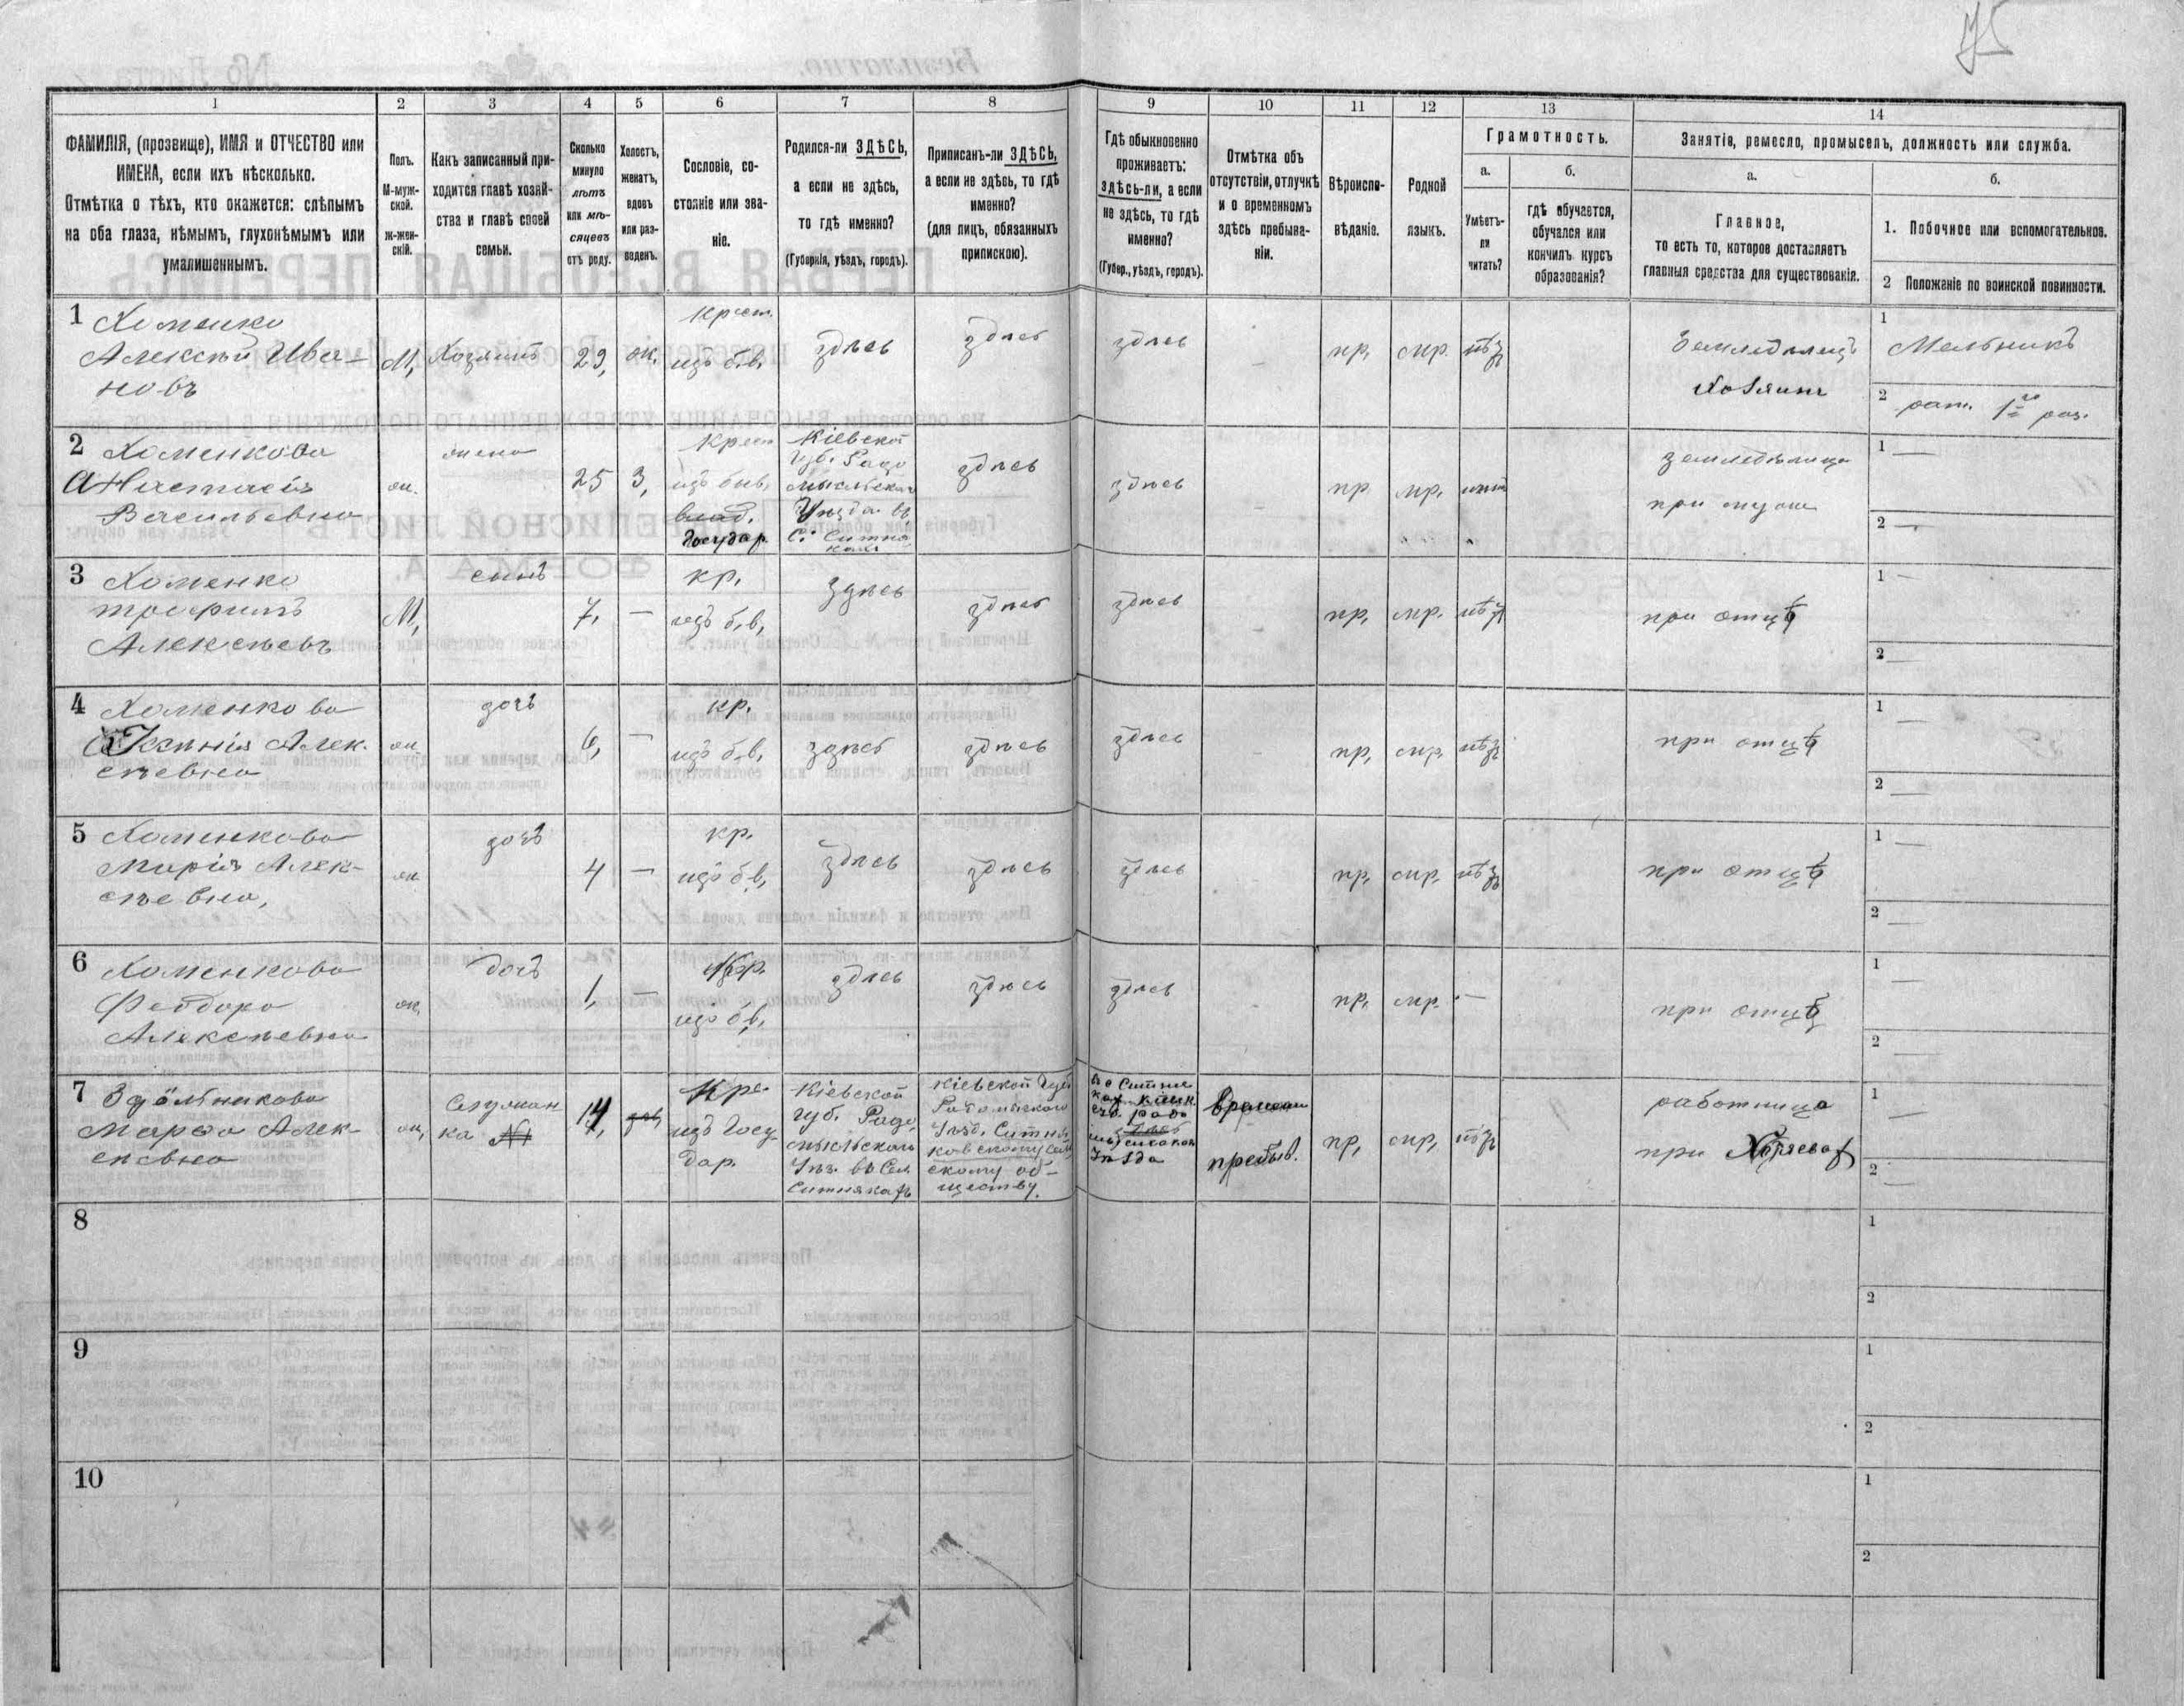 75
1
2
3
4
5
6
7
8
9
10
11
12
13
14
ФАМИЛІЯ, (прозвище), ИМЯ и ОТЧЕСТВО или
ИМЕНА, если ихъ нѣсколько.
Отмѣтка о тѣхъ, кто окажется: слѣпымъ
на оба глаза, нѣмымъ, глухонѣмымъ или
умалишеннымъ.
Полъ.
М-муж-
ской.
Ж-жен-
скій.
Какъ записанный при-
ходится главѣ хозяй-
ства и главѣ своей
семьи.
Сколько
минуло
лѣтъ
или мѣ-
сяцевъ
отъ роду.
Холостъ,
женатъ,
вдовъ
или раз-
веденъ.
Сословіе, со-
стояніе или зва-
ніе.
Родился-ли ЗДѢСЬ,
а если не здѣсь,
то гдѣ именно?
(Губернія, уѣздъ, городъ).
Приписанъ-ли ЗДѢСЬ,
а если не здѣсь, то гдѣ
именно?
(для лицъ, обязанныхъ
припискою).
Гдѣ обыкновенно
проживаетъ:
здѣсь-ли, а если
не здѣсь, то гдѣ
именно?
(Губер., уѣздъ, городъ).
Отмѣтка объ
отсутствіи, отлучкѣ
и о временномъ
здѣсь пребыва-
ніи.
Вѣроиспо-
вѣданіе.
Родной
языкъ.
Грамотность.
а.
Умѣетъ-
ли
читать?
б.
гдѣ обучается,
обучался или
кончилъ курсъ
образованія?
Занятіе, ремесло, промыселъ, должность или служба.
а.
Главное,
то есть то, которое доставляетъ
главныя средства для существованія.
б.
1. Побочное или вспомогательное.
2 Положеніе по воинской повинности.
1 Хоменко
Алексѣй Ива-
новъ
М,
Хозяинъ
29,
ж.
крест.
изъ б.в.
здѣсь
здѣсь
здѣсь
пр,
мр.
нѣтъ
Земледѣлецъ
Хозяинъ
1
Мельникъ
2
рат. 1го раз.
2 Хоменкова
Анастасія
Васильевна
жена
ж.
25
З,
крест
изъ быв.
влад.
Государ
Кіевской
Губ. Радо
мысльскаго
Уѣзда въ
С. Ситня
кахъ
здѣсь
здѣсь
пр
мр.
нѣтъ
земледѣлица
при мужѣ
1 —
2 —
3 Хоменко
Трофимъ
Алексѣевъ
М,
сынъ
7,
—
кр,
изъ б.в,
здѣсь
здѣсь
здѣсь
пр,
мр.
нѣтъ
при отцѣ
1 —
2 —
4 Хоменкова
Ксенія Алек.
сѣевна
ж
дочь
6,
—
кр.
изъ б.в,
здѣсь
здѣсь
здѣсь
пр,
мр,
нѣтъ
при отцѣ
1 —
2 —
5 Хоменкова
Марія Алек-
сѣевна,
ж
дочь
4
—
кр.
изъ б.в,
здѣсь
здѣсь
здѣсь
пр,
мр.
нѣтъ
при отцѣ
1 —
2 —
6 Хоменкова
Феодора
Алексѣевна
ж.
дочь
1,
—
кр.
изъ б.в,
здѣсь
здѣсь
здѣсь
пр,
мр.
—
при отцѣ
1 —
2 —
7
Марфа Алек-
сѣевна
ж,
Служан
ка №1
14,
Кре.
изъ Госу
дар.
Кіевской
губ. Радо,
мысльскаго
Уѣз. въ Сел.
Ситнякахъ
Кіевской Губ
Радомыскаго
Уѣзд. Ситня
ковскому Сель
скому об-
ществу.
Въ Ситня
кахъ Кіевск.
губ. радо
мысльскаго
Уѣзда
времен
пребыв.
пр,
мр,
нѣтъ
работница
при Хозяевахъ
1 —
2 —
8
1
2
9
1
2
10
1
2